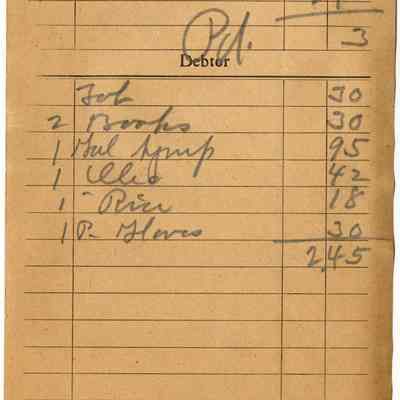 3
Pd.
Debtor
Tob 30
2 Books 30
1 Gal Syrup 95
1 Oleo 42
1 " Rice 18
1 P. Gloves 30
2,45